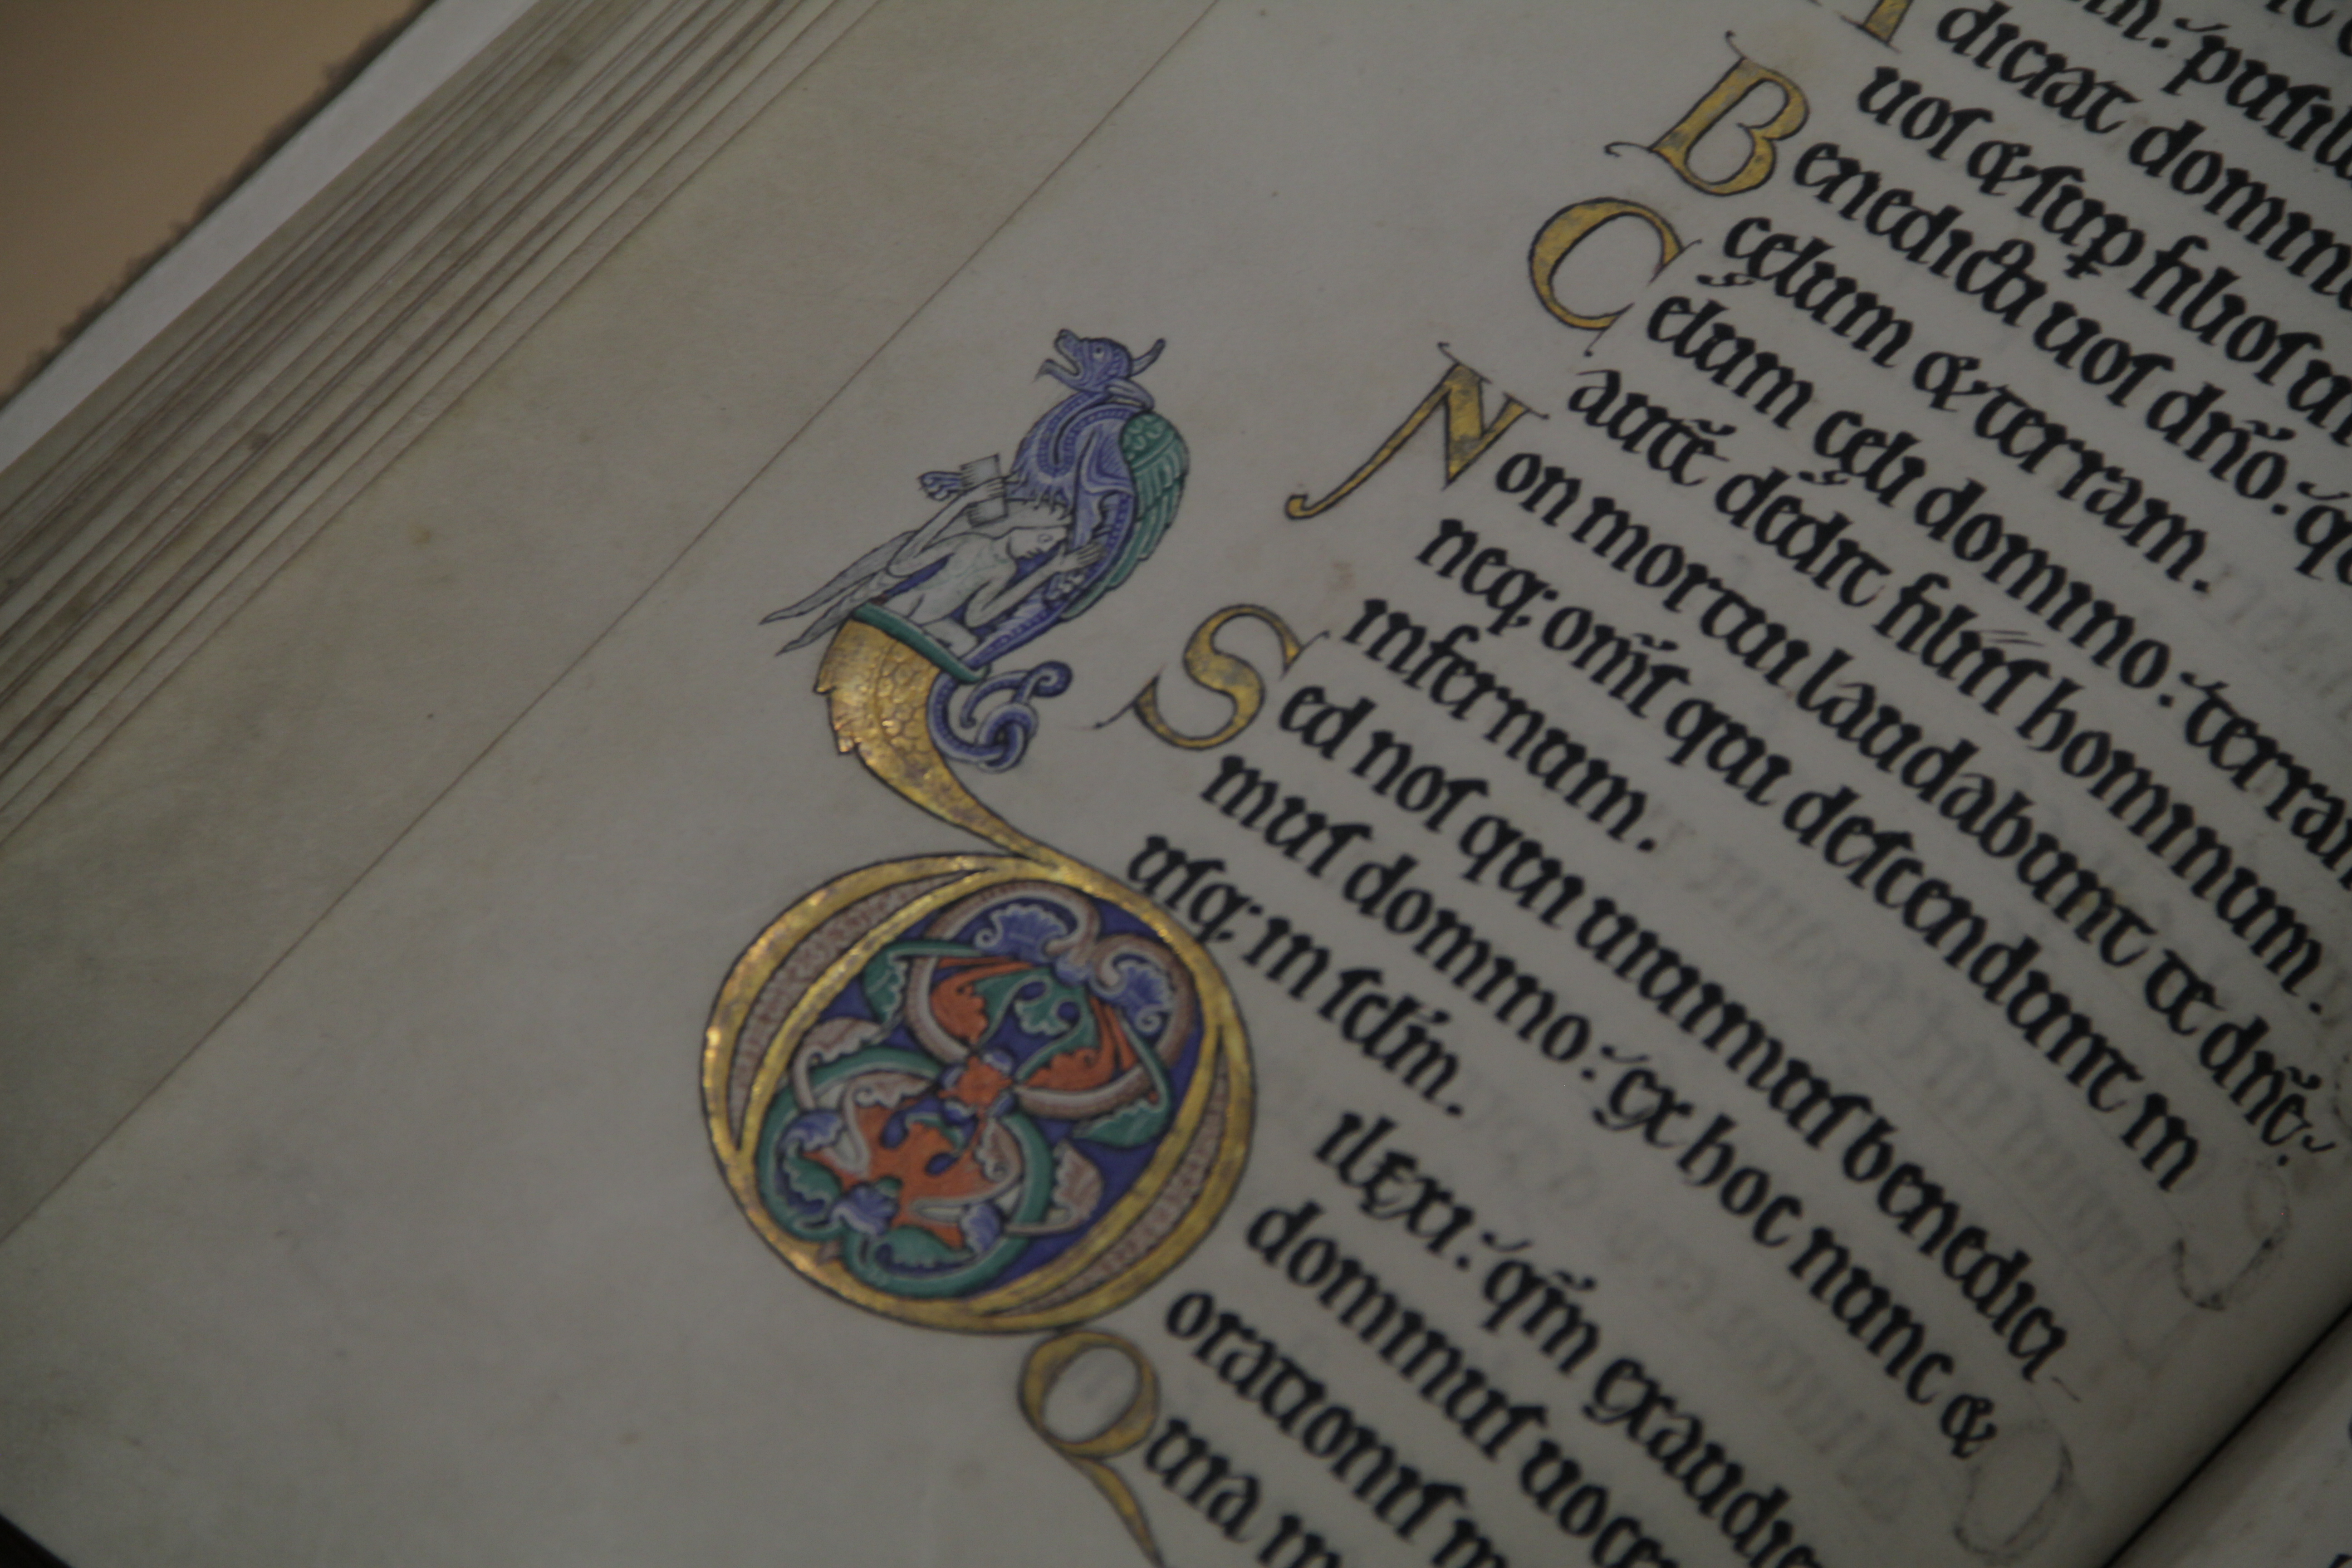 sim. pusill
A diciat domin
uos & sup filios u
Benedicti uos dño. q
cęlum & terram.
Cęlum cęli domino. terram
autē dedit filiis hominum.
Non mortui laudabunt te dñe.
neq; om̄s qui descendunt in
infernum.
Sed nos qui uiuimus benedici-
mus domino. ex hoc nunc &
usq; in sclm̄.
Dilexi. qm̄ exaudi
dominus uoce
orationis m
Quia in